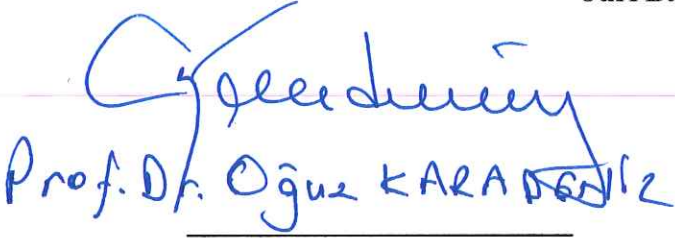 Prof. Dr. Oğuz KARADENİZ